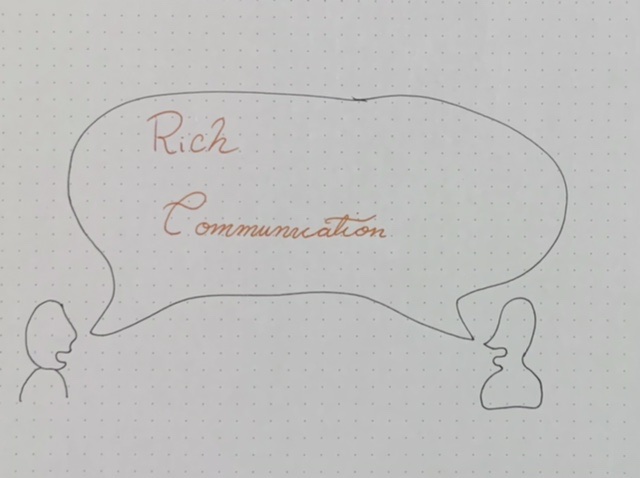 Rich
Communication